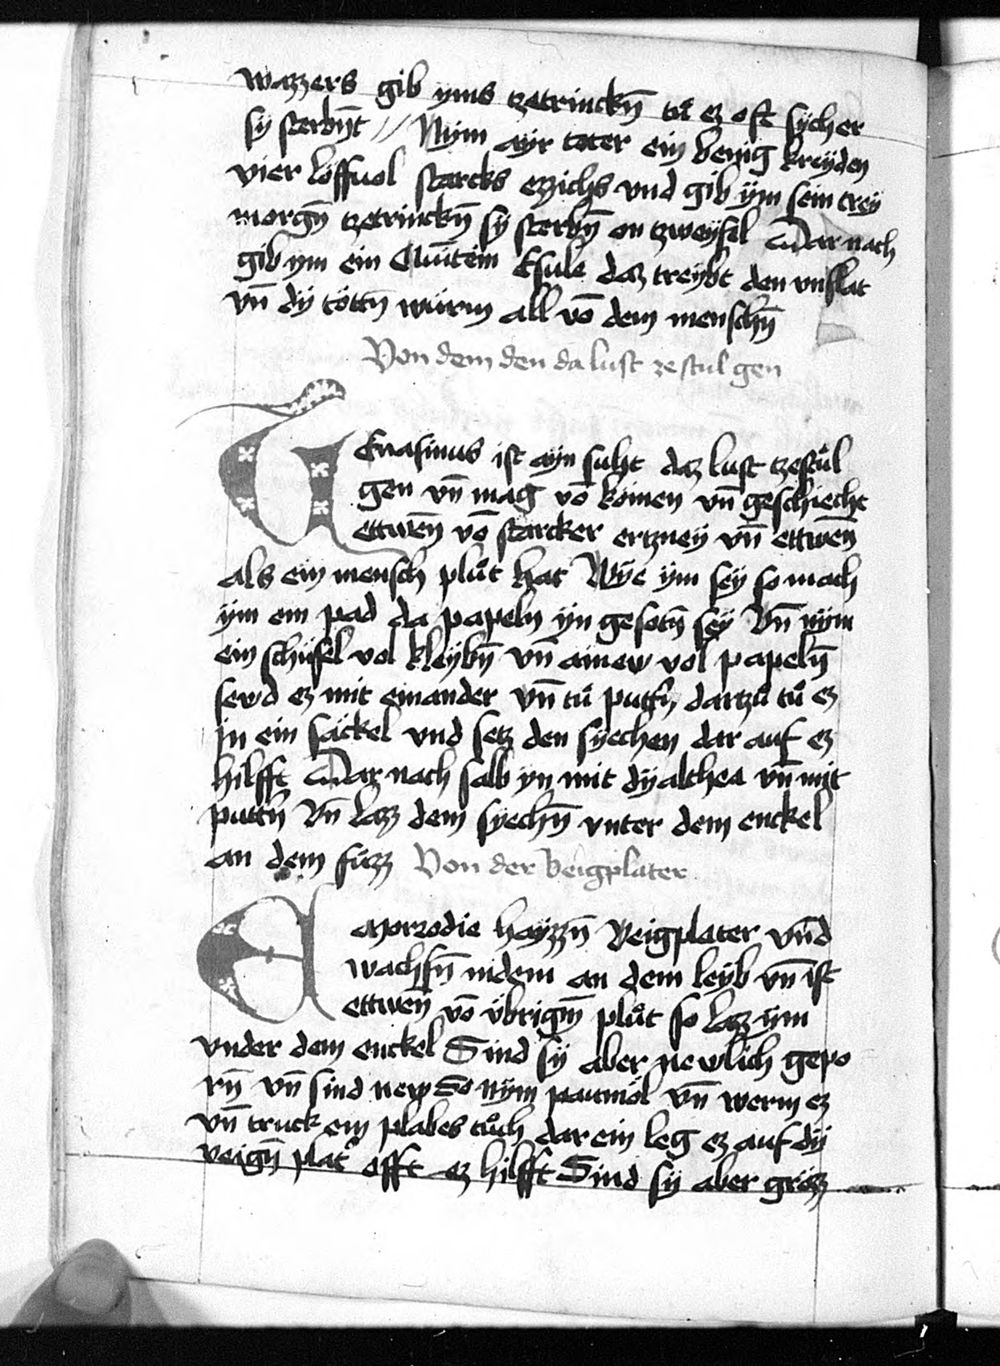 wazzers gib yms tzetrinckn̄ tů ez oft sych er
sy sterbn̄t // Nym ayr toter ein benig kreyden
vier löffuol starcks ezzichs vnd gib ym sein trey
morgn̄ tzetrinckn̄ sy sterbn̄ on tzweyfel Dar nach
gib ym ein Quītein Esula daz treybt den vnflat
vn̄ dy töttn̄ würm all vō dem menschn̄
Von dem den da lust ze stul gen
Tenasmus ist ayn suht daz lust tzestůl
gen vn̄ mag vō komen vn̄ geschiecht
ettwen̄ vō starcker ertzney vn̄ ettwen̄
als ein mensch plůt hat Wye ym sey so mach
ym ein pad da papeln yn gesotn̄ sey Vn̄ nym
ein schüsel vol kleybn̄ vn̄ ainew vol papeln̄
sewd ez mit einander vn̄ tů puttn̄ dartzů tů ez
in ein säckel vnd setz den syechen dar auf ez
hilfft Dar nach salb yn mit dyalthea vn̄ mit
puttn̄ Vn̄ lazz dem syechn̄ vnter dem enckel
an dem fuzz Von der Veigplater
Emorrodie hayzzn̄ Veigplater vn̄d
wachsn̄ nidem an dem leyb vn̄ ist
ettwen̄ vō übrigm̄ plůt so lazz ym
vnder dem enckel Sind sy aber newlich gepo
rn̄ vn̄ sind new So nym paumöl vn̄ werm ez
vn̄ truck ein plabes tůch dar ein leg ez auf dy
veign̄ plat̄ offt ez hilfft Sind sy aber grözz